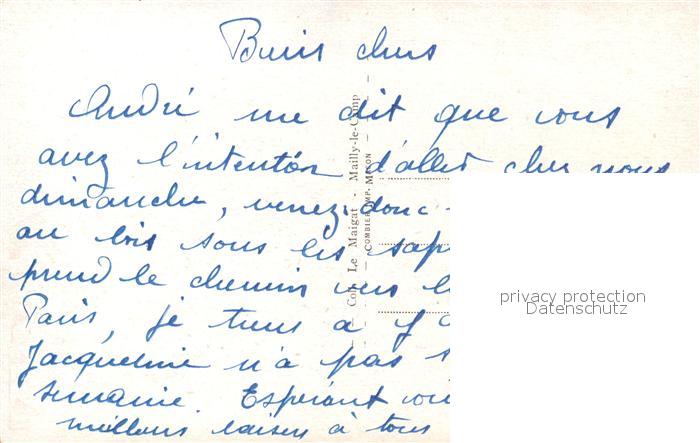 Bien chers
André me dit que vous
avez l'intention d'aller chez nous
dimanche, venez donc
au bois sous les sap
prend le chemin vers l
Paris, je tiens à
Jacqueline n'a pas
semaine. Espérant vou
meilleurs baisers à tous
Coll. Le Maigat - Mailly-le-Camp
COMBIER IMP. MACON
privacy protection
Datenschutz